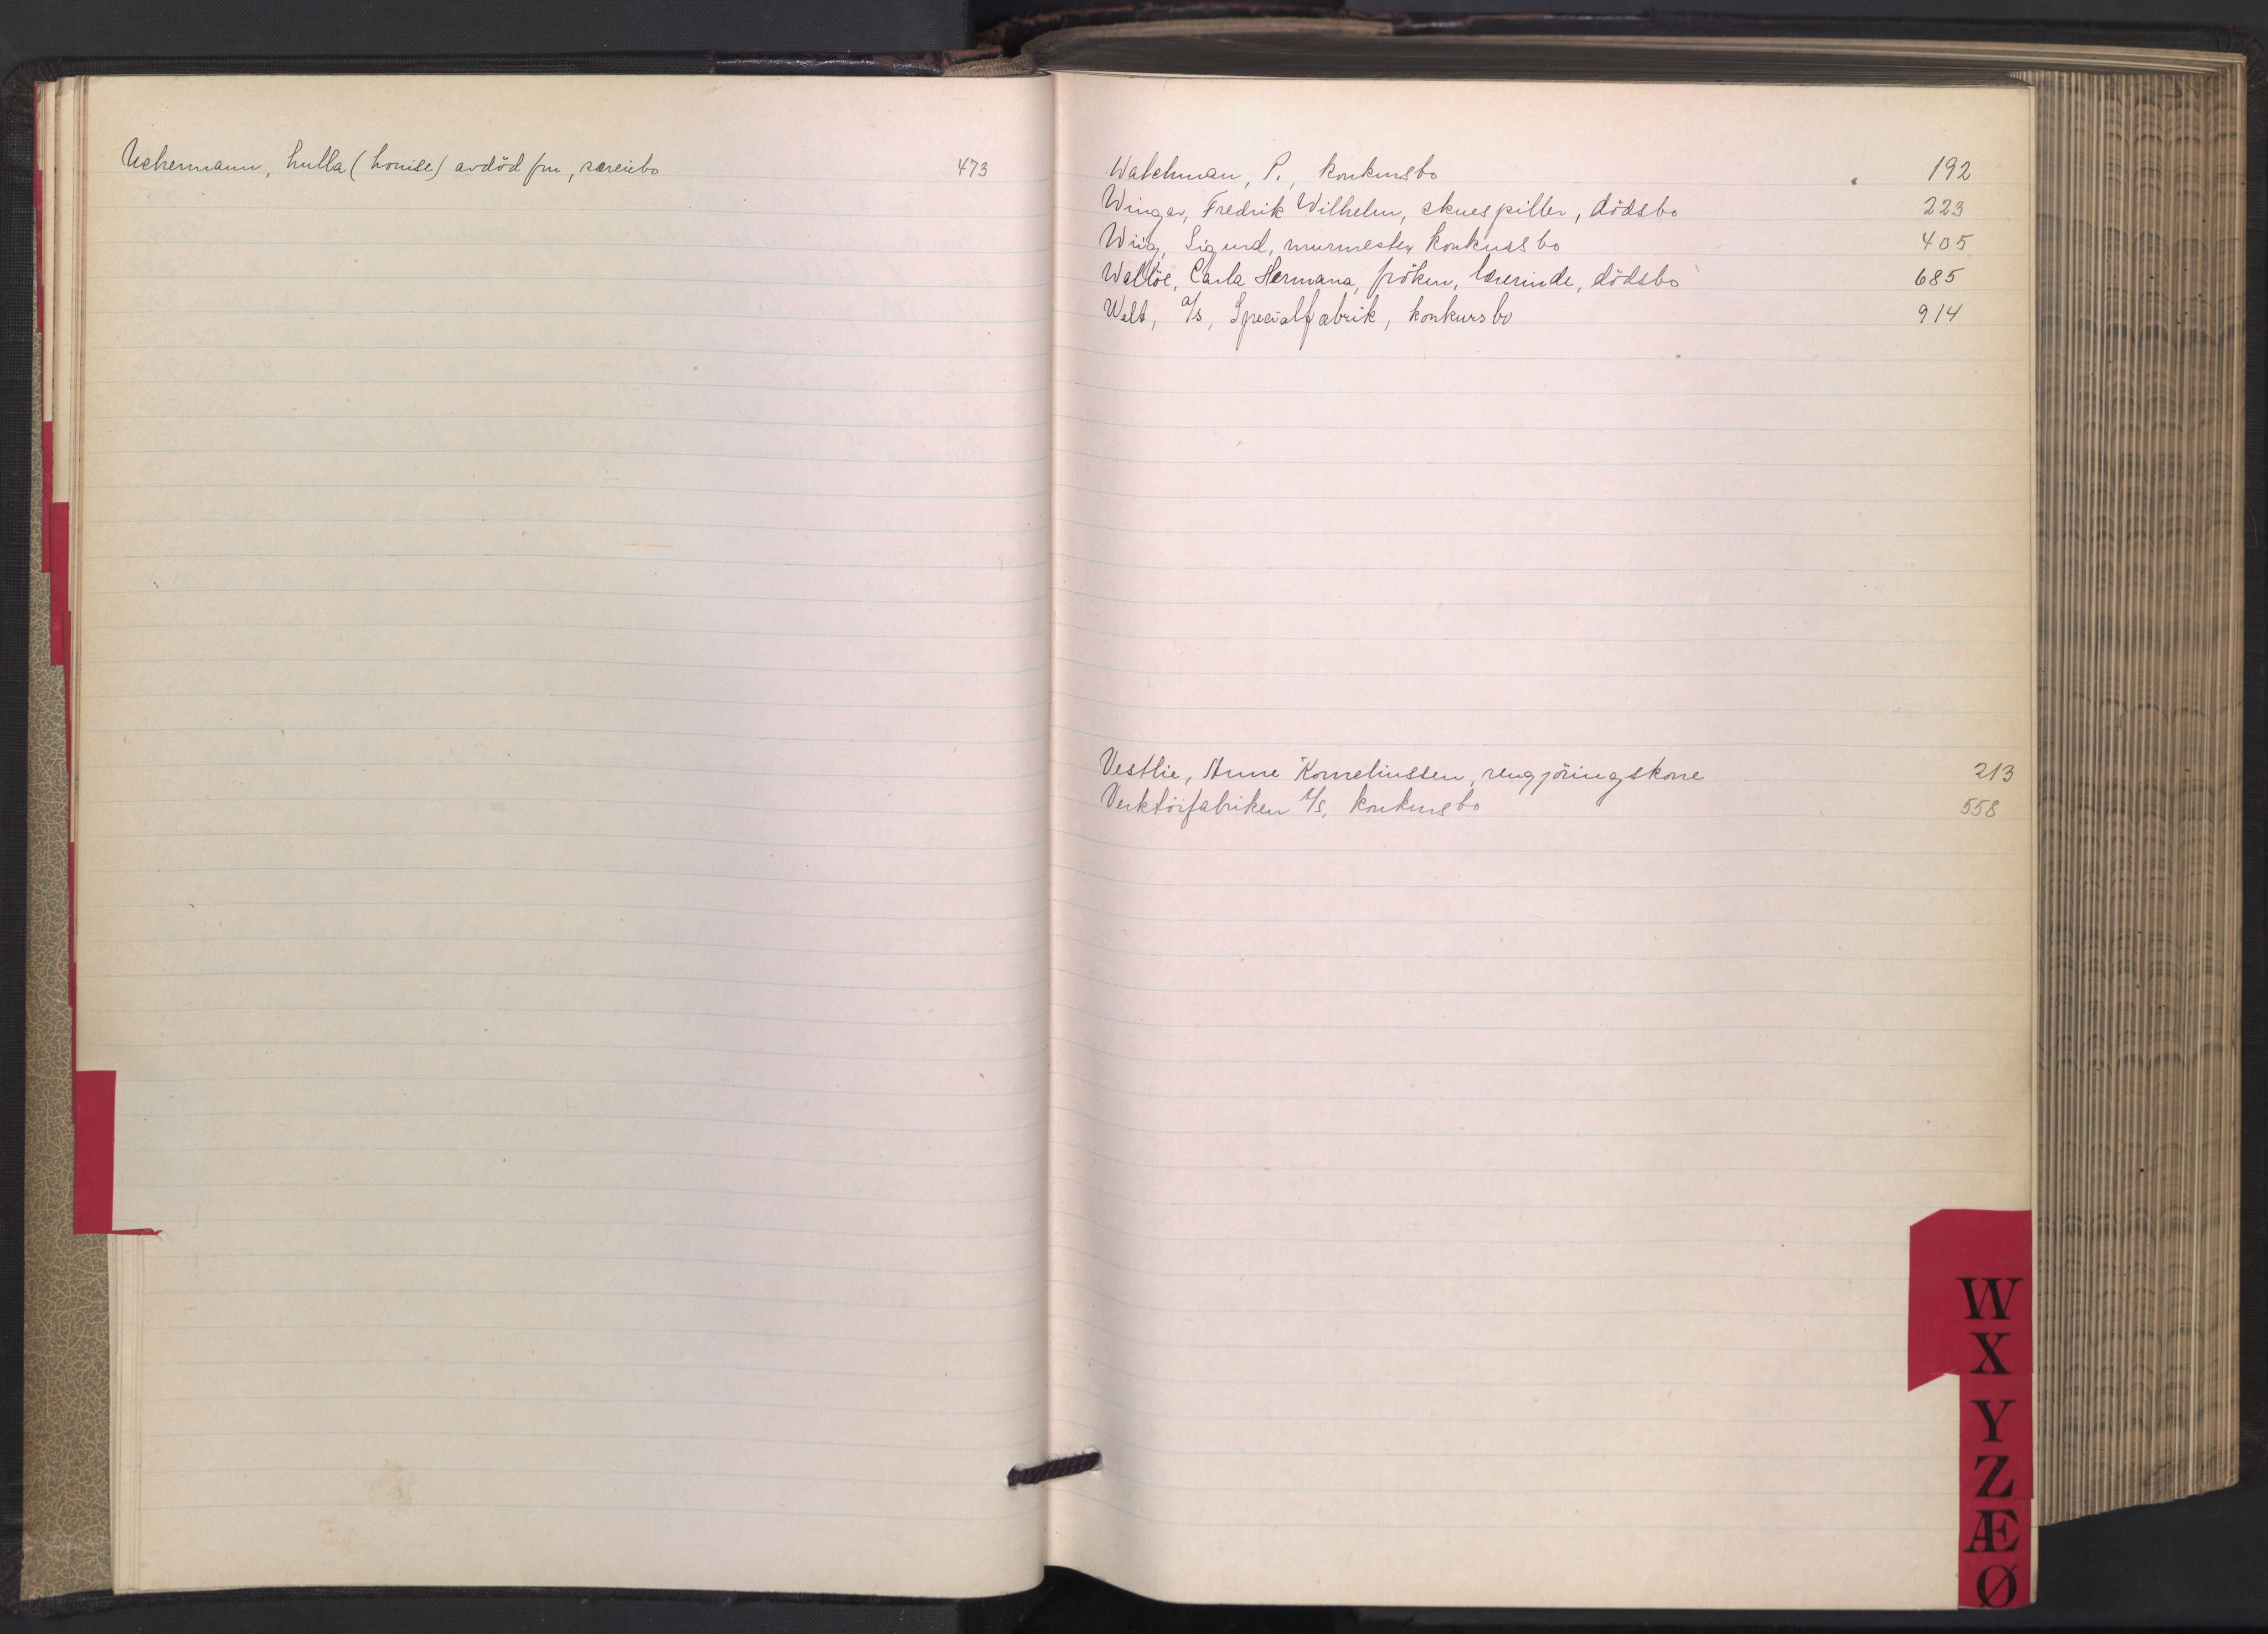 Uchermann, Lulla (Louise) avdöd fru, særeiebo 473
Watchman, P., konkursbo 192
Wingar, Fredrik Wilhelm, skuespiller, dödsbo 223
Wiig, Sigurd, murmester konkursbo 405
Walløe, Carla Hermana, fröken, lærerinde, dödsbo 685
Welt, A/S, Specialfabrik, konkursbo 914
Vestlie, Anne Korneliussen, rengjöringskone 213
Verktöifabriken A/S, konkursbo 558
W
X
Y
Z
Æ
Ø